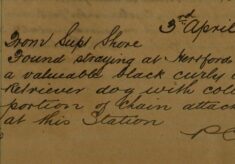 3rd April
From Supt Shore
Found straying at Hertford
a valueable black curly
retriever dog with
portion of chain
at this Station
PC